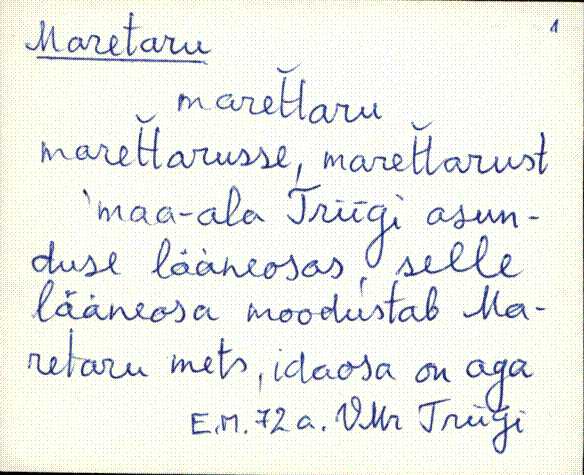 1
Maretaru
maret̆taru
maret̆tarusse, maret̆tarust
'maa-ala Triigi asun-
duse lääneosas, selle
lääneosa moodustab Ma-
retaru mets, idaosa on aga
E.M. 72 a. VMr Triigi